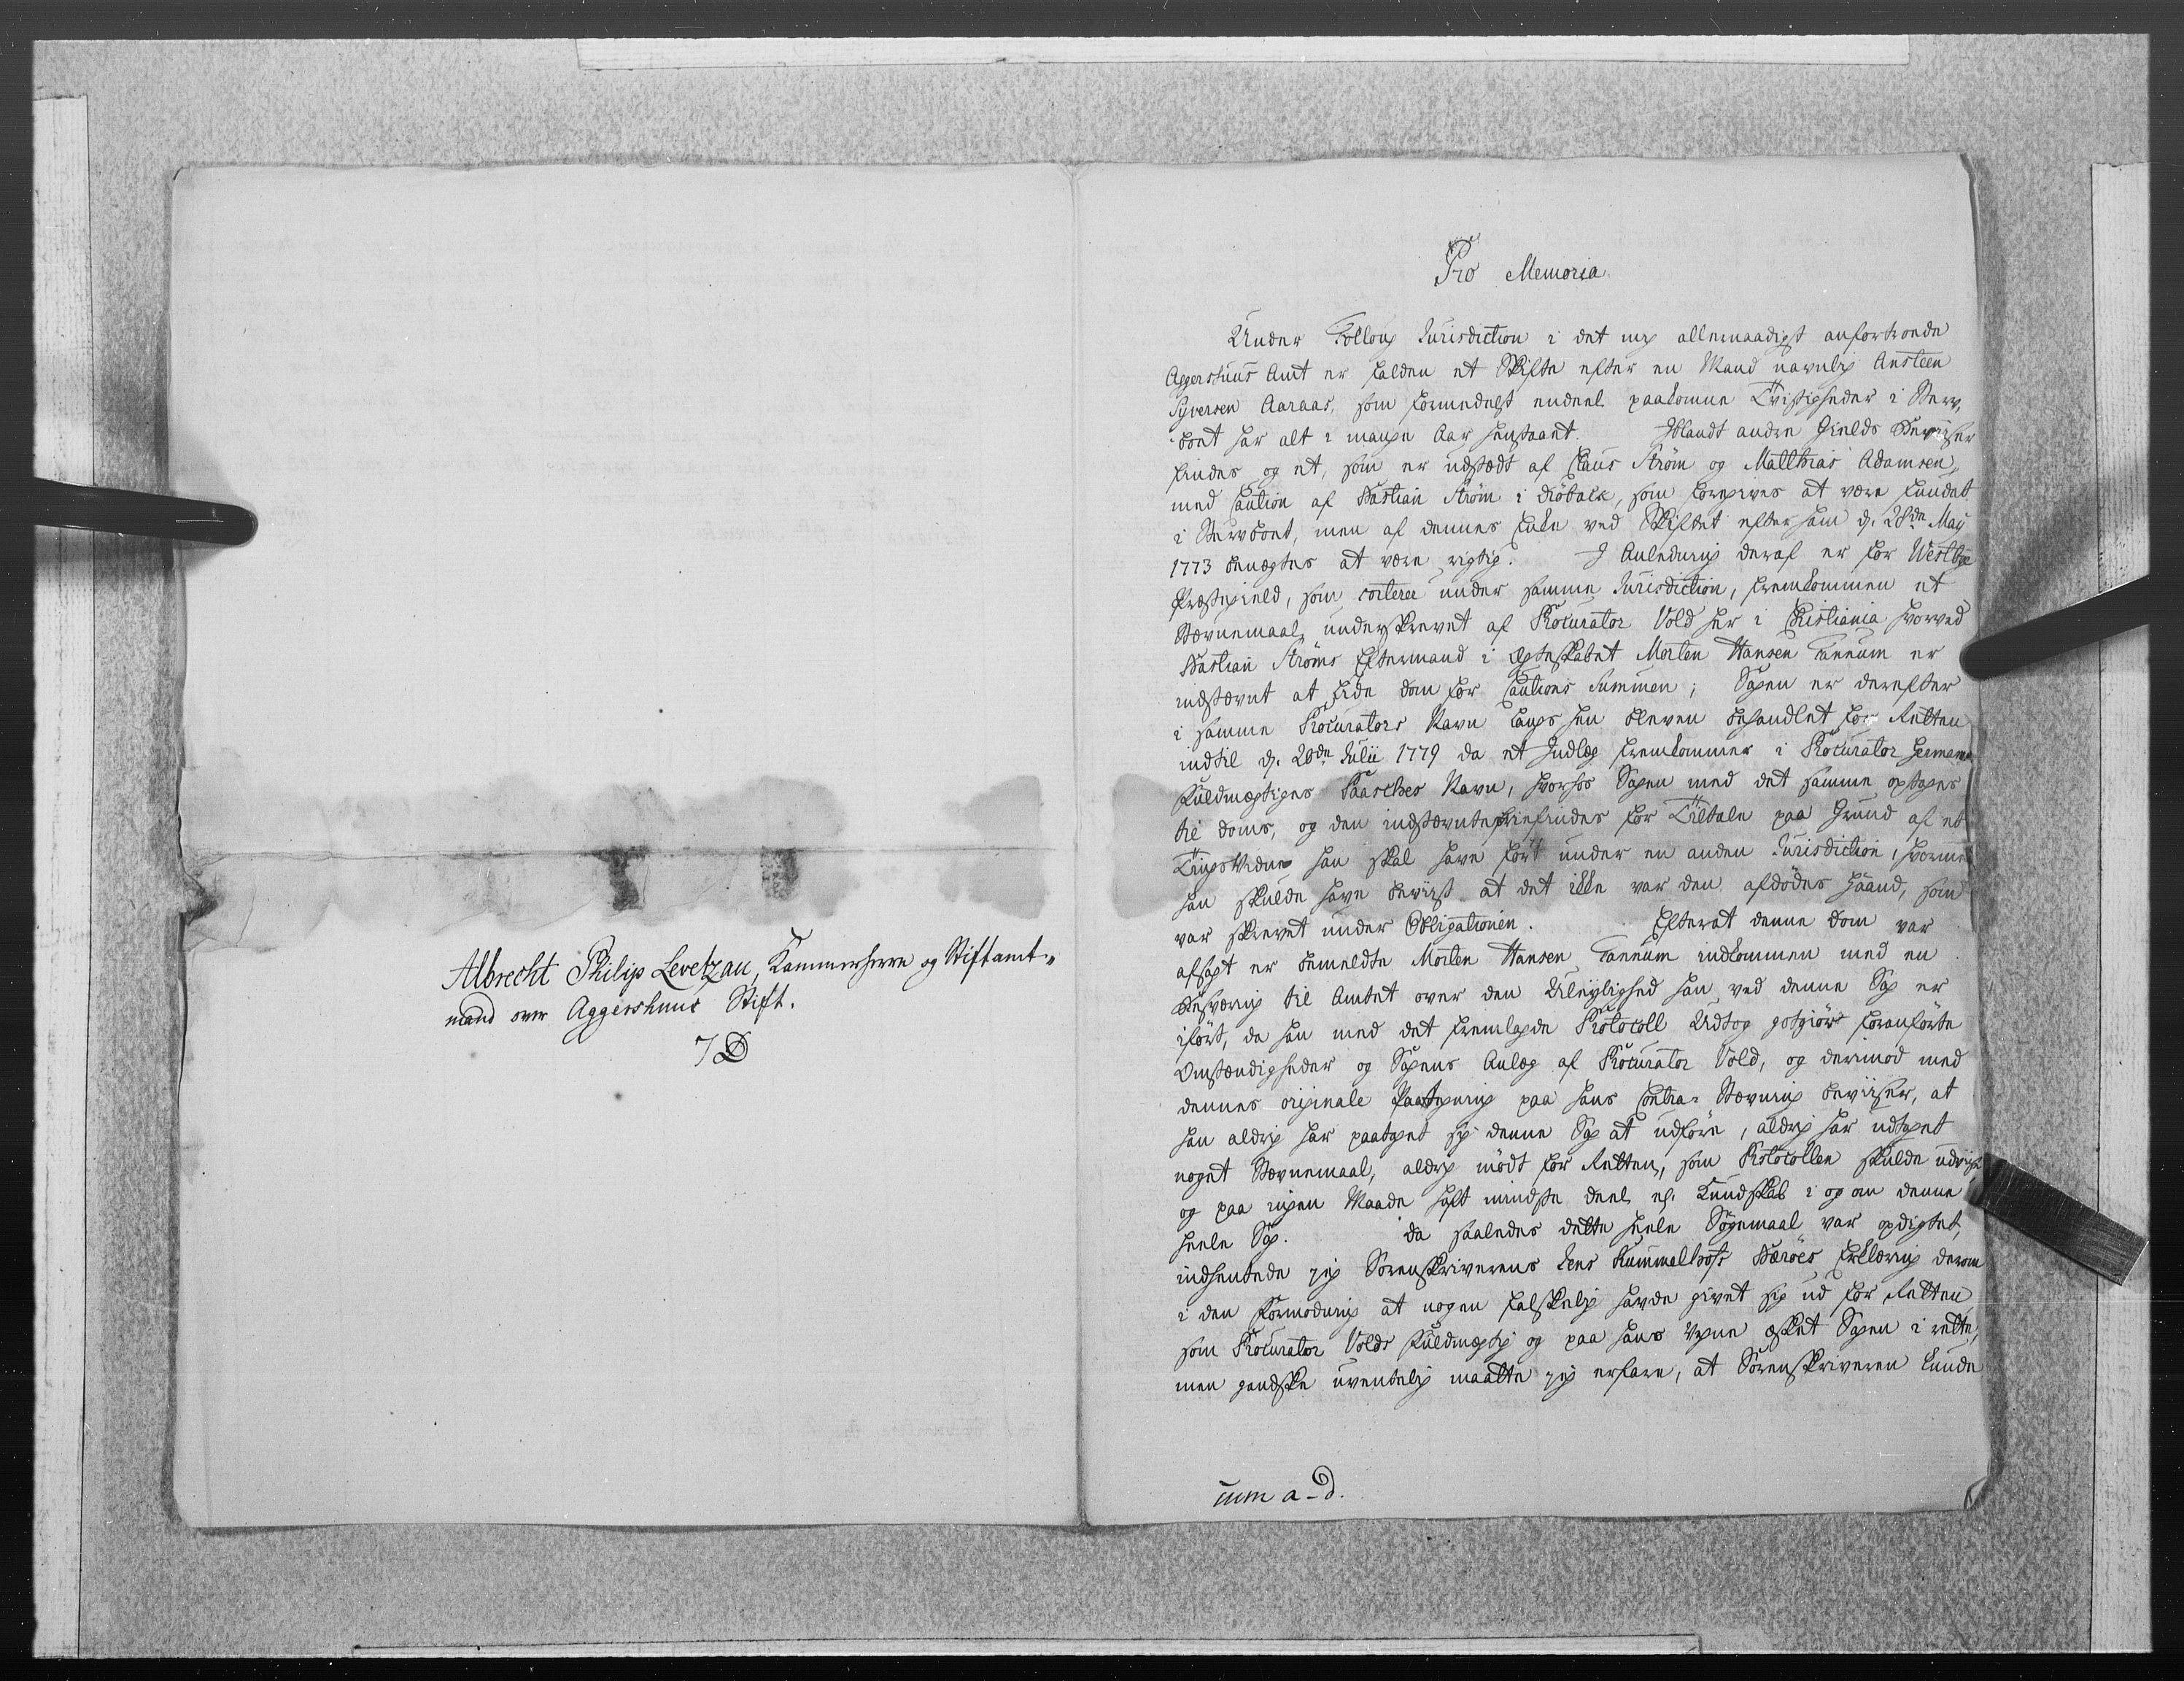 Albrecht Philip Levetzau, Kammerherre og Stiftamt-
mand over Aggershuus Stift.
7 D
Pro Memoria
Under Folloug Jurisdiction i det mig allernaadigst anfortroede
Aggershuus Amt er falden et Skifte efter en Mand navnlig Ansteen
Syversen Aaraas, som formedelst endeel paakomne Tvistigheder i Sterv-
boet har alt i mange Aar henstaaet. Iblandt andre Gields Beviiser
findes og et, som er udstædt af Claus Strøm og Matthias Adamsen,
med Caution af Bastian Strøm i Drøbak, som foregives at være fundet
i Stervboet, men af dennes Enke ved Skiftet efter ham d. 28de Maij
1773 benægtes at være rigtig. I Anledning deraf er for Westbye
Præstegield, som sorterer under samme Jurisdiction, fremkommen et
Stævnemaal, underskrevet af Procurator Vold her i Christiania hvorved
Bastian Strøms Eftermand i Ægteskabet Morten Hansen Tannum er
indstævnt at lide Dom for Cautions Summen; Sagen er derefter
i samme Procurators Navn langs hen bleven behandlet for Retten
indtil d. 20de Julii 1779 da et Indlæg fremkommer i Procurator
Fuldmægtiges Navn, hvorhos Sagen med det samme optages
til Doms, og den indstævnte friefindes for Tiltale paa Grund af et
Tingsvidne han skal have ført under en anden Jurisdiction, hvormed
han skulde have beviist at det ikke var den afdødes Haand, som
var skrevet under Obligationen. Efterat denne Dom var
afsagt er bemeldte Morten Hansen Tannum indkommen med en
Besværing til Amtet over den Uleylighed han ved denne Sag er
iført, da han med det fremlagde Protocoll Udtog godgiør foranførte
Omstændigheder og Sagens Anlæg af Procurator Vold, og derimod med
dennes originale Paategning paa hans Contra-Stævning beviiser, at
han aldrig har paataget sig denne Sag at udføre, aldrig har udtaget
noget Stævnemaal, aldrig mødt for Retten, som Protocollen skulde udviise
og paa ingen Maade haft mindste Deel el. Kundskab i og om denne
heele Sag. Da saaledes dette heele Søgemaal var opdigtet,
indhentede jeg Sorenskriverens Jens Bærøes Erklæring derom
i den Formodning at nogen falskelig havde givet sig ud for Retten
som Procurator Volds Fuldmægtig og paa hans Vegne æsket Sagen i rette,
men gandske uventelig maatte jeg erfare, at Sorenskriveren kunde
cum a-d.